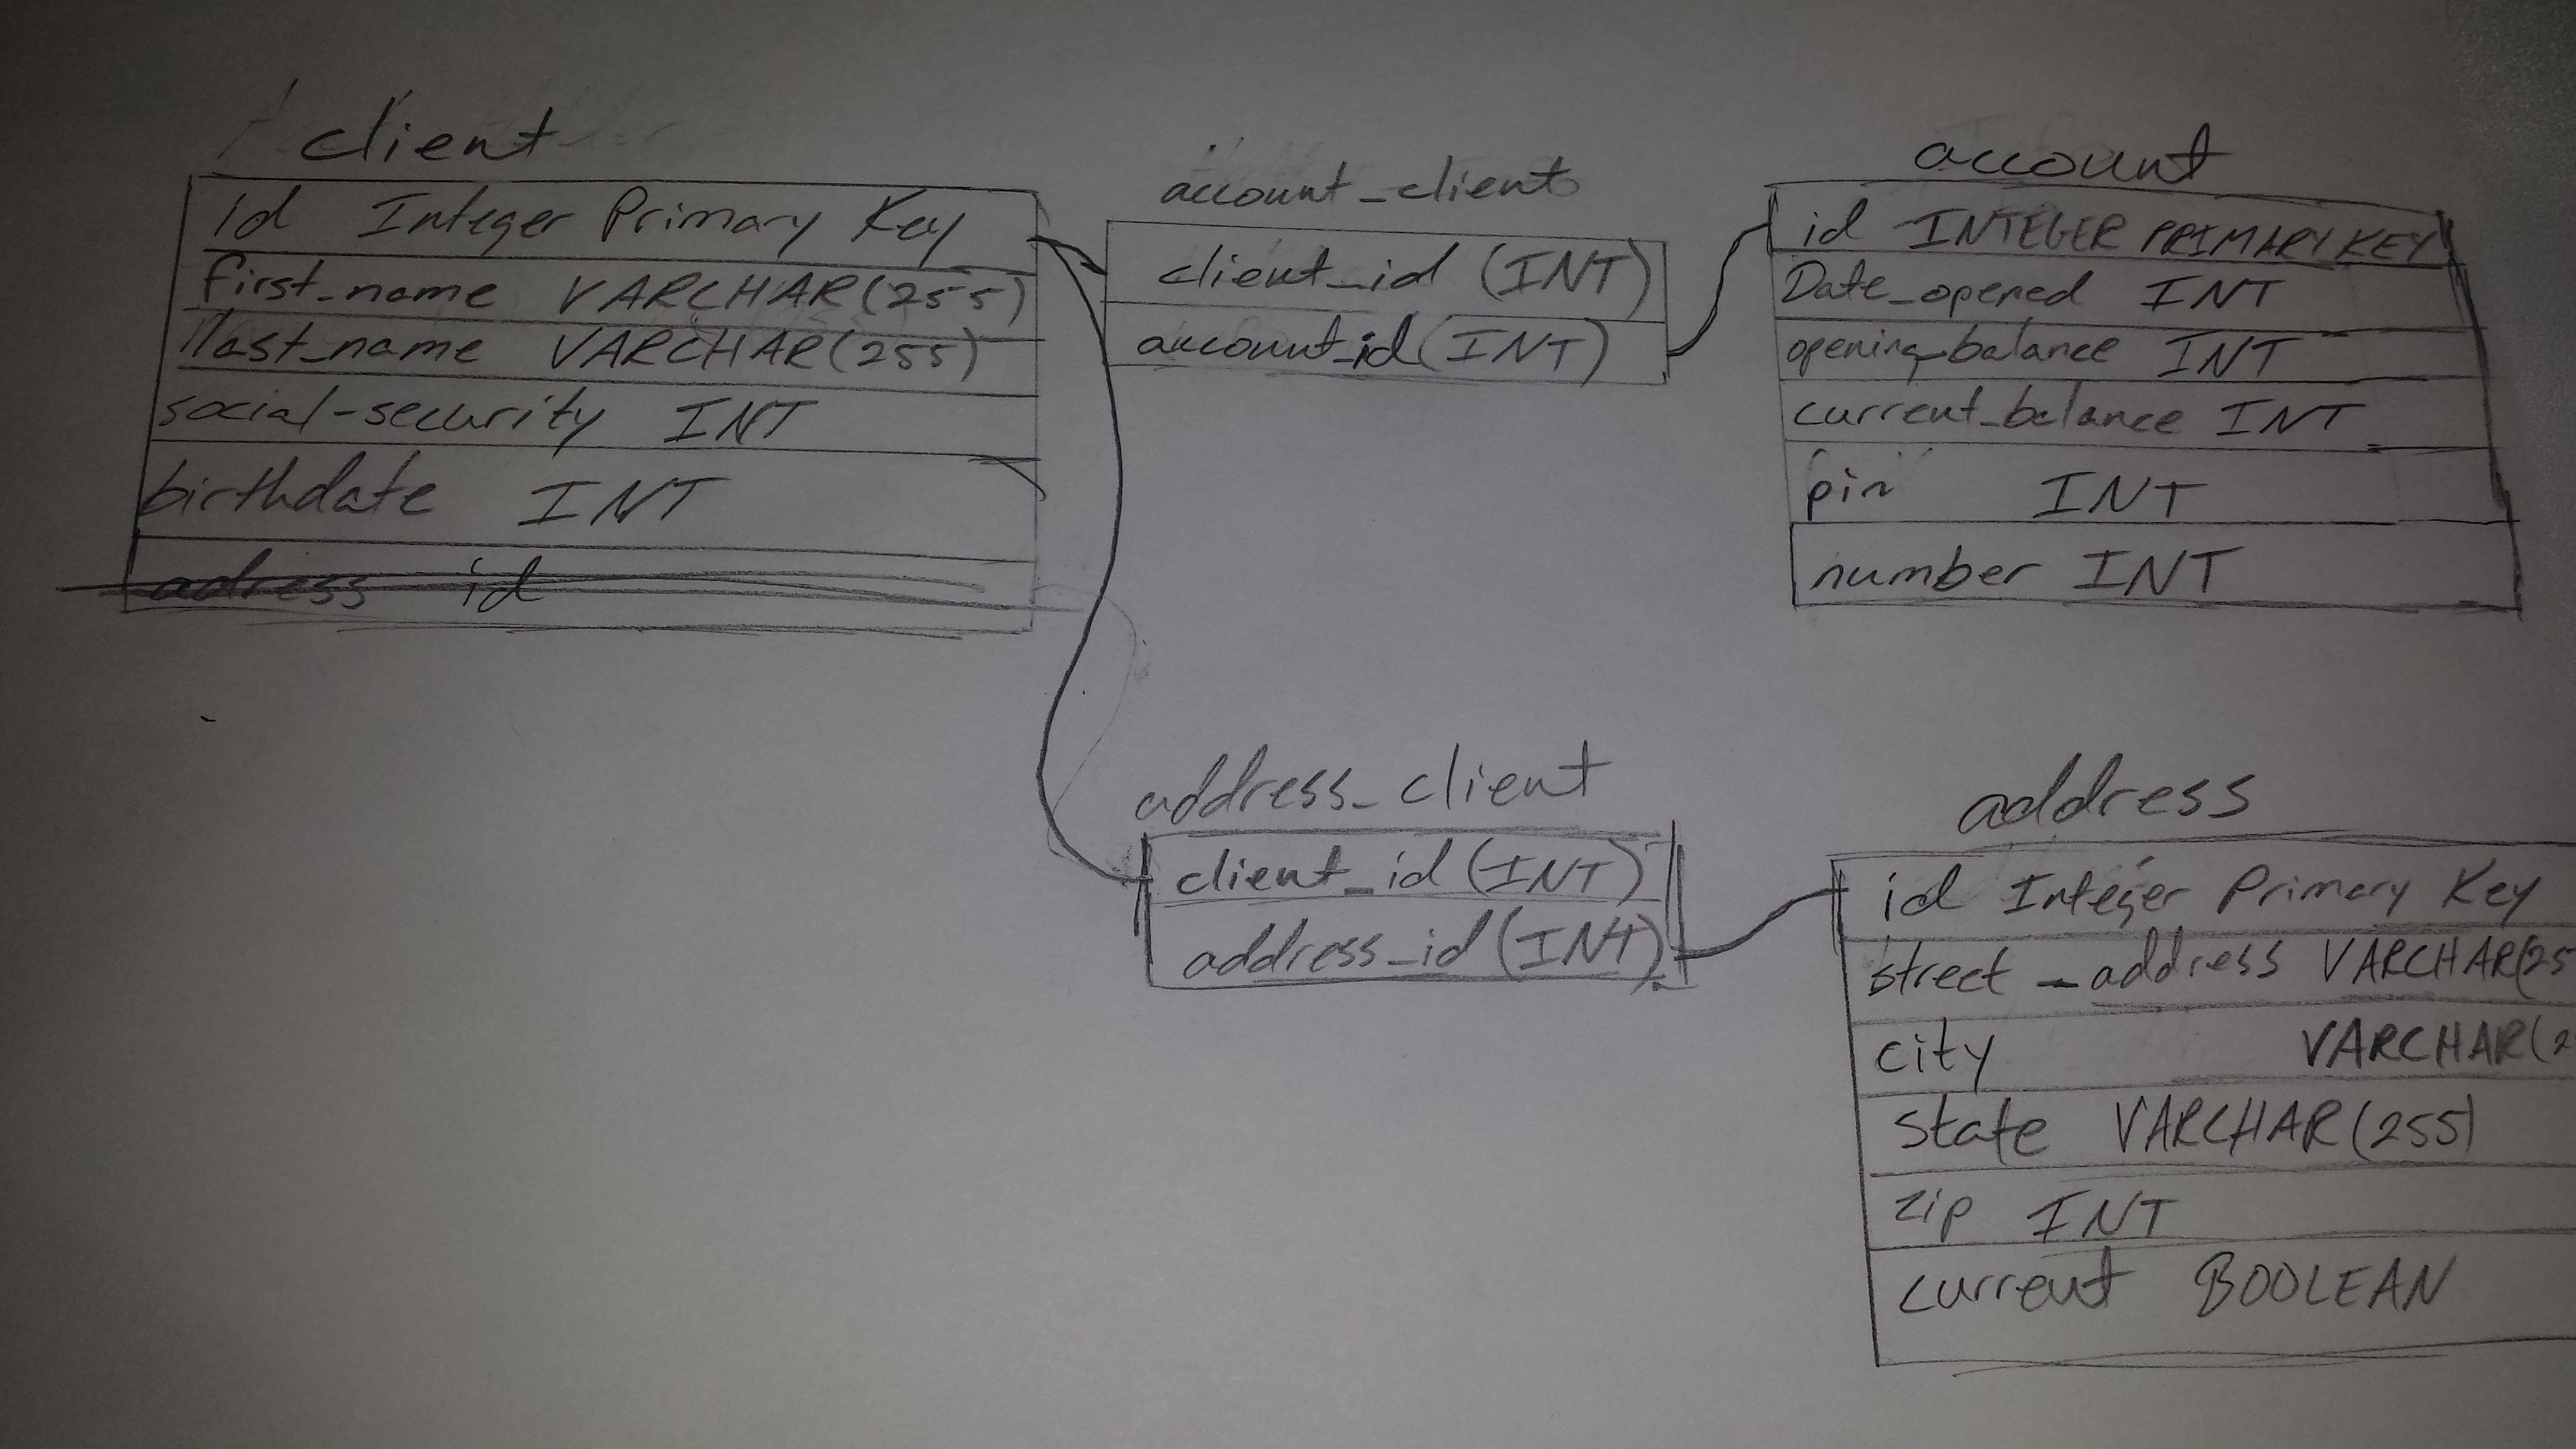 client
id Integer Primary Key
first_name VARCHAR(255)
last_name VARCHAR(255)
social-security INT
birthdate INT
adress id
account_client
client_id (INT)
account_id (INT)
account
id INTEGER PRIMARY KEY
Date_opened INT
opening_balance INT
current_balance INT
pin INT
number INT
address_client
client_id (INT)
address_id (INT)
address
id Integer Primary Key
street_address VARCHAR(25
city VARCHAR(2
state VARCHAR(255)
zip INT
current BOOLEAN